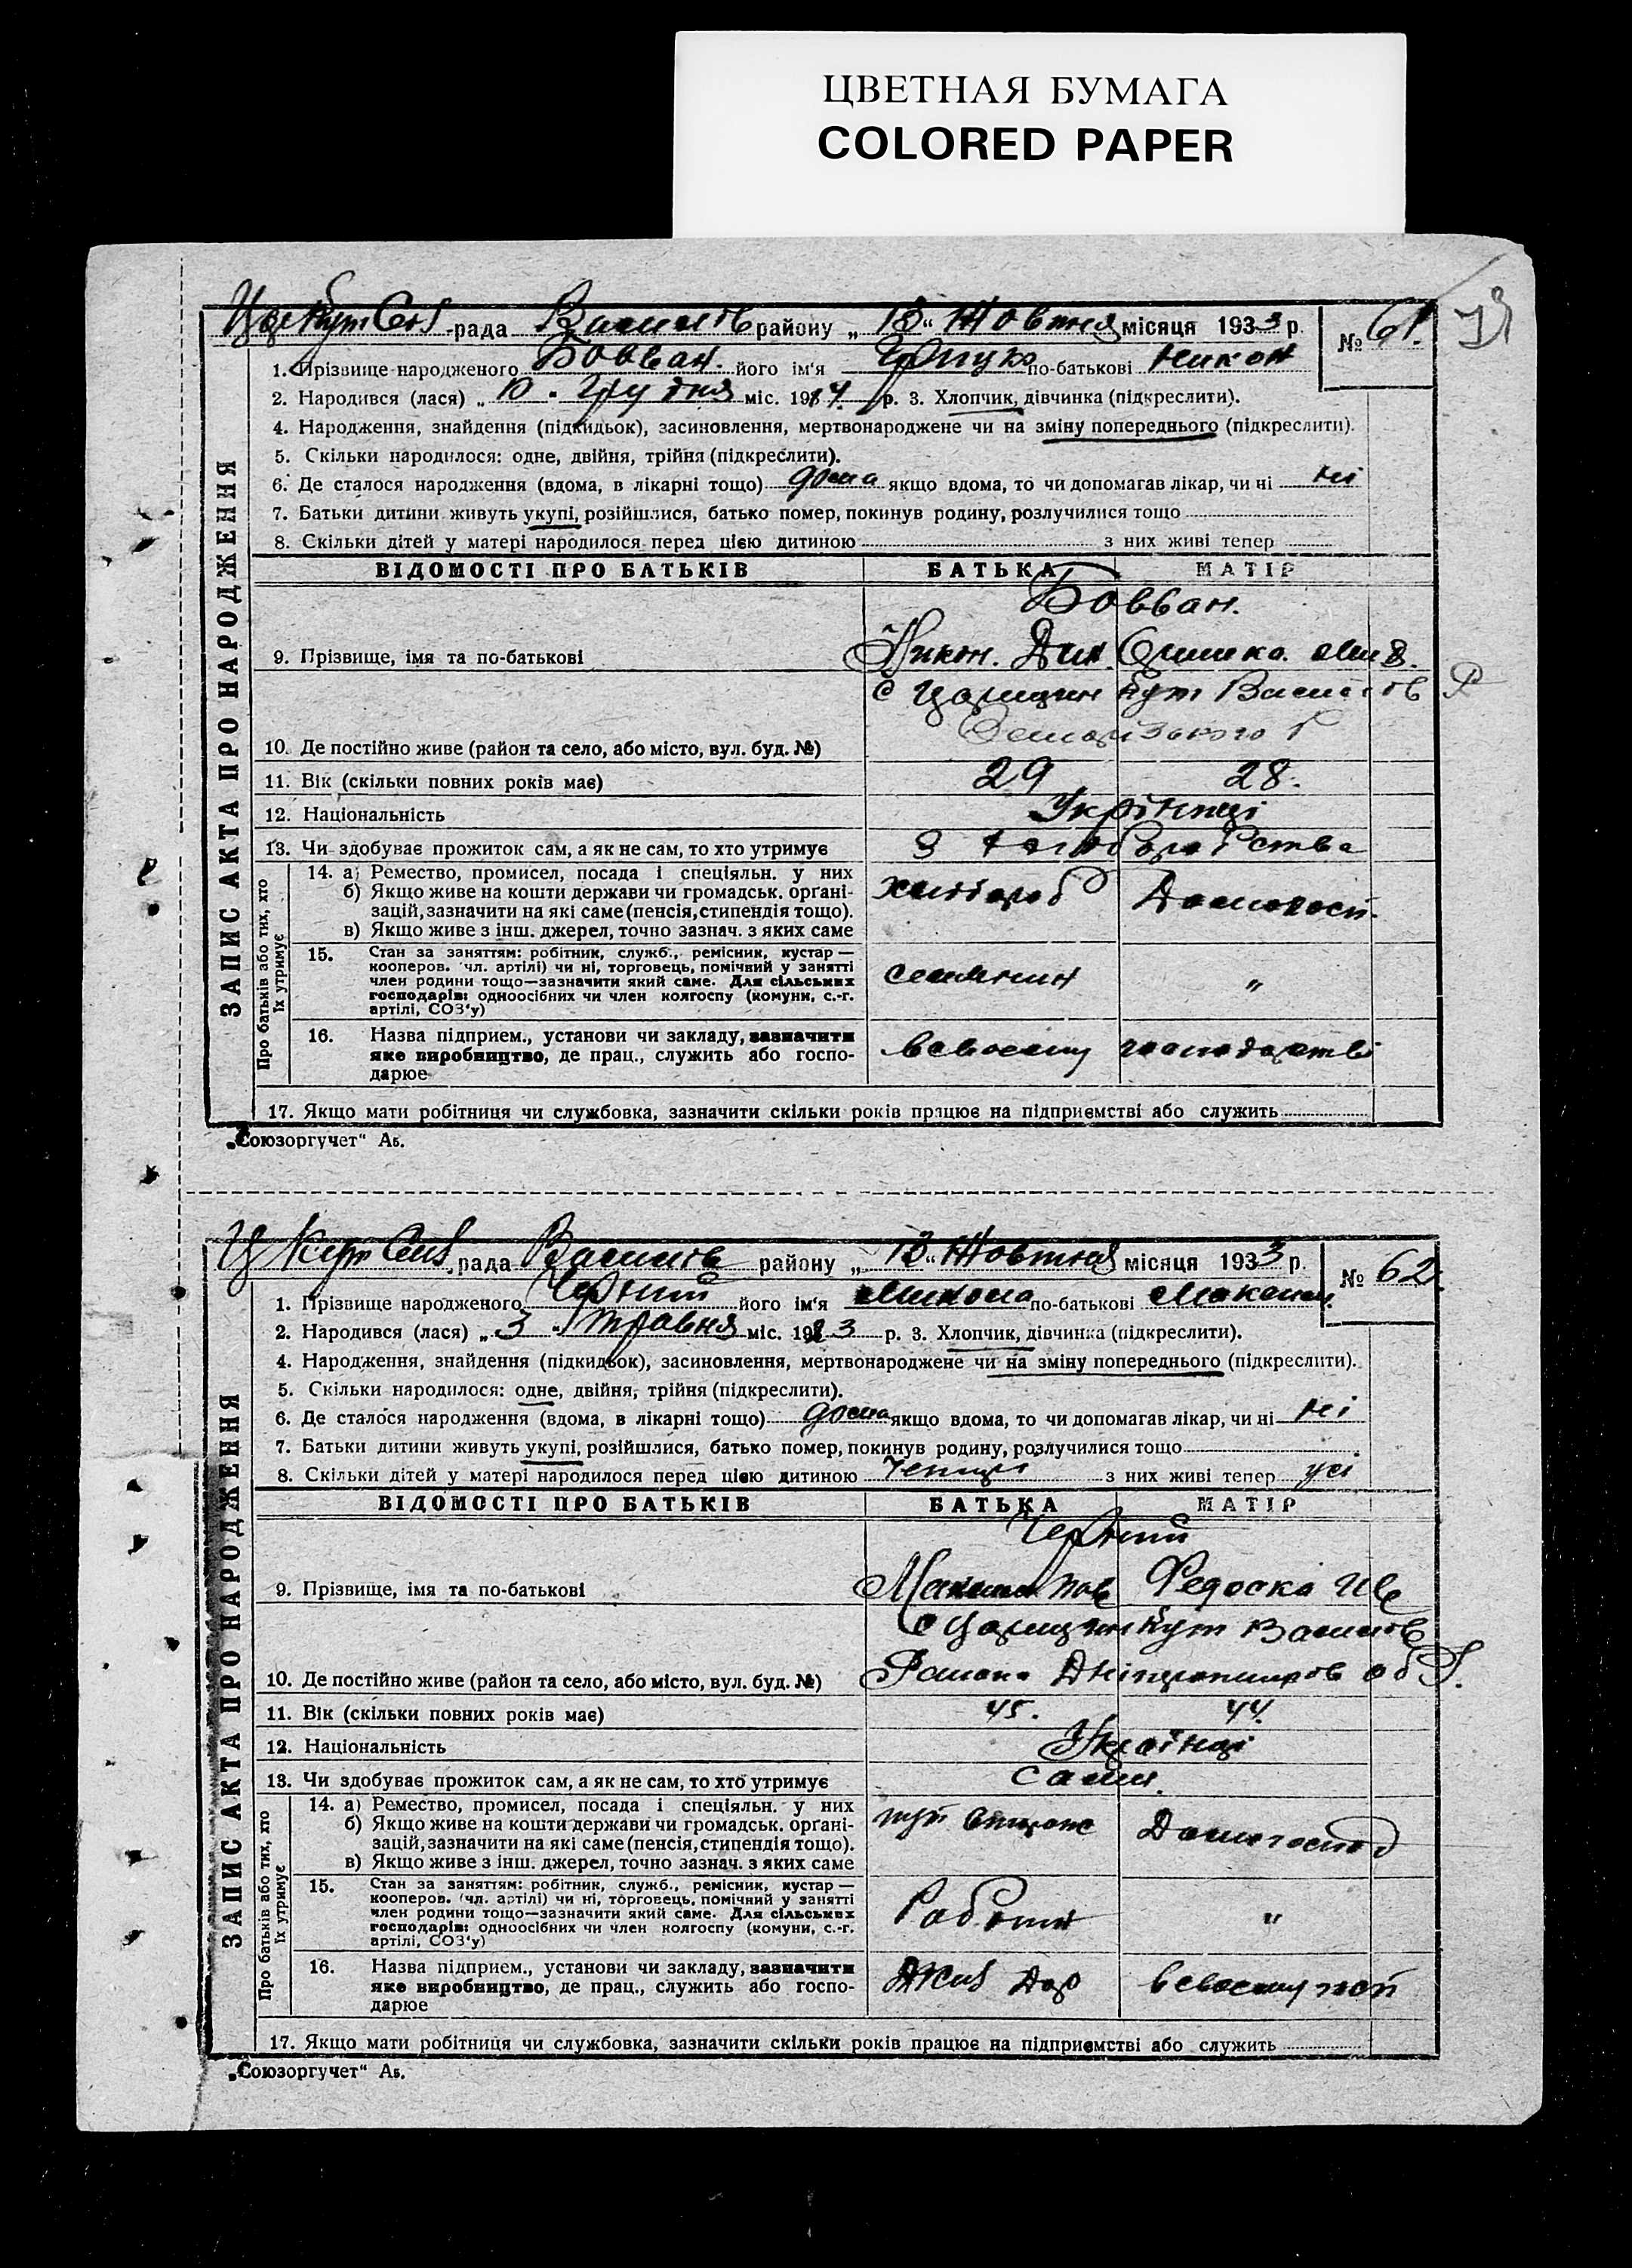 ЦВЕТНАЯ БУМАГА
COLORED PAPER
рада Василів району „18“ Жовтня місяця 1933 р. № 61.
1. Прізвище народженого Бовван. його ім'я по-батькові Никон
2. Народився (лася) „10“ Грудня міс. 19 р. 3. Хлопчик, дівчинка (підкреслити).
4. Народження, знайдення (підкидьок), засиновлення, мертвонароджене чи на зміну попереднього (підкреслити).
5. Скільки народилося: одне, двійня, трійня (підкреслити).
6. Де сталося народження (вдома, в лікарні тощо) дома якщо вдома, то чи допомагав лікар, чи ні ні
7. Батьки дитини живуть укупі, розійшлися, батько помер, покинув родину, розлучилися тощо
8. Скільки дітей у матері народилося перед цією дитиною з них живі тепер
ЗАПИС АКТА ПРО НАРОДЖЕННЯ
ВІДОМОСТІ ПРО БАТЬКІВ БАТЬКА МАТІР
Бовван.
9. Прізвище, імя та по-батькові Никон.
с Царицин Кут Василів
10. Де постійно живе (район та село, або місто, вул. буд. №)
11. Вік (скільки повних років має) 29 28.
12. Національність Укрінці
13. Чи здобуває прожиток сам, а як не сам, то хто утримує
Про батьків або тих, хто їх утримує
14. а) Ремество, промисел, посада і спеціяльн. у них
б) Якщо живе на кошти держави чи громадськ. орґані-
зацій, зазначити на які саме (пенсія, стипендія тощо).
в) Якщо живе з інш. джерел, точно зазнач. з яких саме
хлібороб Домогосп.
15. Стан за заняттям: робітник, служб., ремісник, кустар —
кооперов. чл. артілі) чи ні, торговець, помічний у занятті
член родини тощо—зазначити який саме. Для сільських
господарів: одноосібних чи член колгоспу (комуни, с.-г.
артілі, СОЗ'у)
селянин „
16. Назва підприєм., установи чи закладу, зазначити
яке виробництво, де прац., служить або госпо-
дарюе
всвоєму господарстві
17. Якщо мати робітниця чи службовка, зазначити скільки років працює на підприємстві або служить
„Союзоргучет“ Аб.
Ц Кут рада Василів району „18“ Жовтня місяця 1933 р. № 62
1. Прізвище народженого Чергний його ім'я Микола по-батькові
2. Народився (лася) „3“ Травня міс. 19 3 р. 3. Хлопчик, дівчинка (підкреслити).
4. Народження, знайдення (підкидьок), засиновлення, мертвонароджене чи на зміну попереднього (підкреслити).
5. Скільки народилося: одне, двійня, трійня (підкреслити).
6. Де сталося народження (вдома, в лікарні тощо) дома якщо вдома, то чи допомагав лікар, чи ні ні
7. Батьки дитини живуть укупі, розійшлися, батько помер, покинув родину, розлучилися тощо
8. Скільки дітей у матері народилося перед цією дитиною з них живі тепер усі
ЗАПИС АКТА ПРО НАРОДЖЕННЯ
ВІДОМОСТІ ПРО БАТЬКІВ БАТЬКА МАТІР
Чергний
9. Прізвище, імя та по-батькові Федоска Ів
с Царицин Кут Василів
10. Де постійно живе (район та село, або місто, вул. буд. №) Района Дніпропетров обл.
11. Вік (скільки повних років має) 45. 44.
12. Національність Українці
13. Чи здобуває прожиток сам, а як не сам, то хто утримує сами.
Про батьків або тих, хто їх утримує
14. а) Ремество, промисел, посада і спеціяльн. у них
б) Якщо живе на кошти держави чи громадськ. орґані-
зацій, зазначити на які саме (пенсія, стипендія тощо).
в) Якщо живе з інш. джерел, точно зазнач. з яких саме
Домогоспод
15. Стан за заняттям: робітник, служб., ремісник, кустар —
кооперов. чл. артілі) чи ні, торговець, помічний у занятті
член родини тощо—зазначити який саме. Для сільських
господарів: одноосібних чи член колгоспу (комуни, с.-г.
артілі, СОЗ'у)
„
16. Назва підприєм., установи чи закладу, зазначити
яке виробництво, де прац., служить або госпо-
дарюе
Дор всвоєму
17. Якщо мати робітниця чи службовка, зазначити скільки років працює на підприємстві або служить
„Союзоргучет“ Аб.